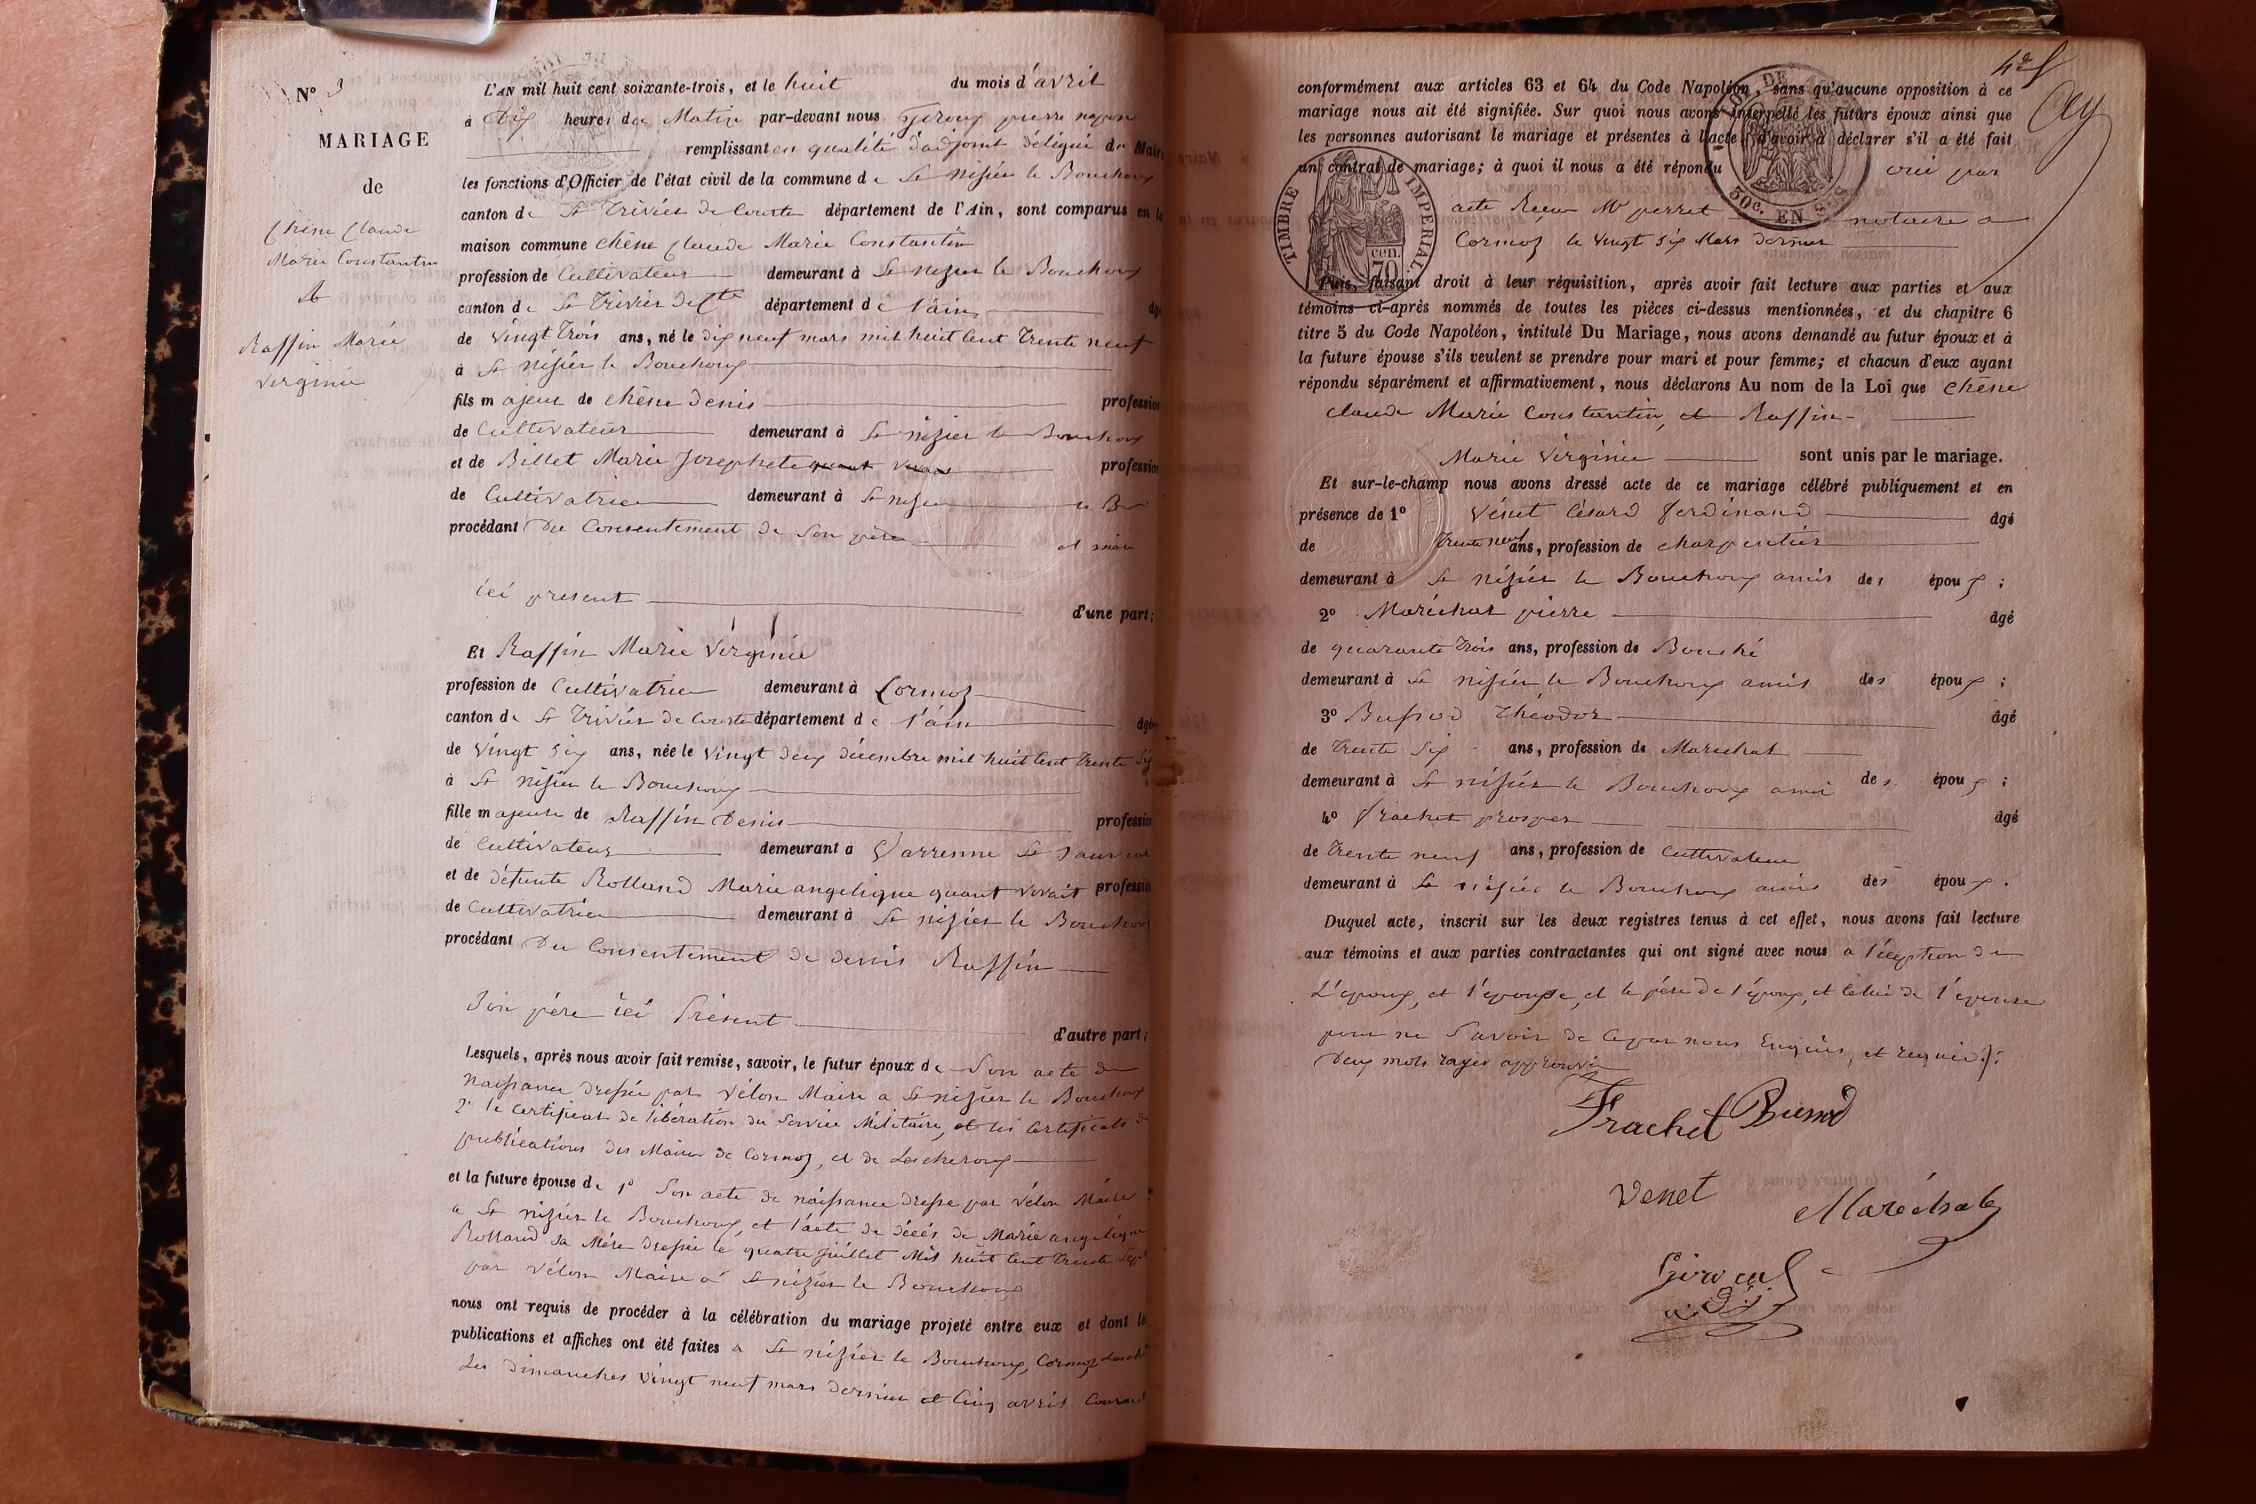 N° 3
MARIAGE
de
Chêne Claude
Marie Constantin
&
Raffin Marie
Virginie
L'AN mil huit cent soixante-trois, et le huit du mois d'avril
à dix heures du Matin par-devant nous Giroux pierre
remplissant en qualité d'adjoint délégué du Maire
les fonctions d'Officier de l'état civil de la commune de St nizier le Bouchoux
canton de St Trivier de Courte département de l'Ain, sont comparus en la
maison commune Chêne Claude Marie Constantin
profession de Cultivateur demeurant à St nizier le Bouchoux
canton de St Trivier de Cte département de l'ain âgé
de vingt trois ans, né le dix neuf mars mil huit cent trente neuf
à St nizier le Bouchoux
fils majeur de chêne Denis profession
de Cultivateur demeurant à St nizier le Bouchoux
et de Billet Marie Josephete quant vivait profession
de Cultivatrice demeurant à St nizier le B
procédant Du Consentement de Son père et mère
ici present d'une part;
Et Raffin Marie Virginie
profession de Cultivatrice demeurant à Cormoz
canton de St Trivier de Courte département de l'ain âgée
de vingt six ans, née le vingt deux décembre mil huit cent trente six
à St nizier le Bouchoux
fille majeure de Raffin Denis profession
de Cultivateur demeurant à Varrenne St Sauveur
et de défunte Rolland Marie angelique quant vivait profession
de Cultivatrice demeurant à St nizier le Bouchoux
procédant Du Consentement de denis Raffin
Son père ici Présent d'autre part;
Lesquels, après nous avoir fait remise, savoir, le futur époux de Son acte de
naissance dressée par Vélon Maire a St nizier le Bouchoux
2° le Certificat de libération du Service Militaire, et les Certificats de
publications des Maires de Cormoz, et de Lescheroux
et la future épouse de 1° Son acte de naissance dressé par Vélon Maire
a St nizier le Bouchoux, et l'acte de décés de Marie angelique
Rolland sa Mère dressée le quatre juillet Mil huit cent trente sept
par Vélon Maire à St nizier le Bouchoux
nous ont requis de procéder à la célébration du mariage projeté entre eux et dont les
publications et affiches ont été faites a St nizier le Bouchoux, Cormoz
Les dimanches vingt neuf mars dernier et Cinq avril Courant
42
conformément aux articles 63 et 64 du Code Napoléon, sans qu'aucune opposition à ce
mariage nous ait été signifiée. Sur quoi nous avons interpellé les futurs époux ainsi que
les personnes autorisant le mariage et présentes à l'acte, d'avoir à déclarer s'il a été fait
un contrat de mariage; à quoi il nous a été répondu oui par
acte Recu Me perret notaire a
Cormoz le vingt six Mars dernier
TIMBRE IMPERIAL
70 cen.
50c. EN SUS
Puis, faisant droit à leur réquisition, après avoir fait lecture aux parties et aux
témoins ci-après nommés de toutes les pièces ci-dessus mentionnées, et du chapitre 6
titre 5 du Code Napoléon, intitulé Du Mariage, nous avons demandé au futur époux et à
la future épouse s'ils veulent se prendre pour mari et pour femme; et chacun d'eux ayant
répondu séparément et affirmativement, nous déclarons Au nom de la Loi que Chêne
claude Marie Constantin, et Raffin
Marie Virginie sont unis par le mariage.
Et sur-le-champ nous avons dressé acte de ce mariage célébré publiquement et en
présence de 1° Vénet Césard Ferdinand âgé
de trente neuf ans, profession de charpentier
demeurant à St nizier le Bouchoux amis des époux;
2° Maréchal pierre âgé
de quarante trois ans, profession de Bouché
demeurant à St nizier le Bouchoux amis des époux;
3° Busnod Théodor âgé
de trente six ans, profession de Marechal
demeurant à St nizier le Bouchoux ami des époux;
4° frachet prosper âgé
de trente neuf ans, profession de Cultivateur
demeurant à St nizier le Bouchoux amis des époux.
Duquel acte, inscrit sur les deux registres tenus à cet effet, nous avons fait lecture
aux témoins et aux parties contractantes qui ont signé avec nous a l'éception de
L'epoux, et l'epouse, et le père de l'époux, et Celui de l'epouse
pour ne Savoir de Ce par nous Enquis, et requis.
Deux mots rayés approuvés
Frachet Busnod
Venet Maréchal
Giroux
adj